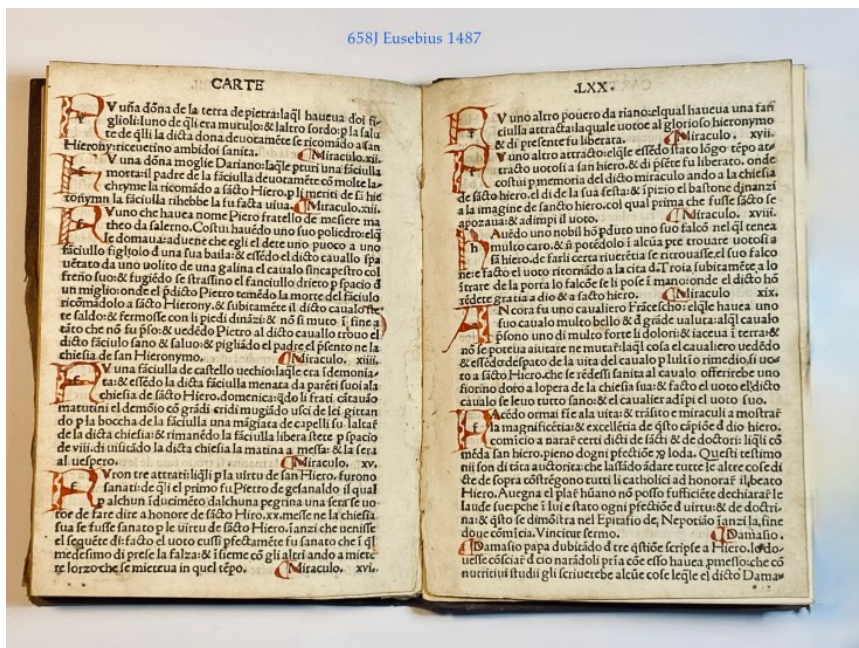 658J Eusebius 1487
CARTE
V uña dõna de la terra de pietra:laq̃l haueua doi fi-
glioli:luno de q̃li era mutulo:& laltro sordo:p la salu
te de q̃lli la dicta dona deuotamẽte se ricomãdo a san
Hierony:riceuetino ambidoi sanita. Miraculo.xii.
V una dõna moglie Dariano:laq̃le pturi una fãciulla
morta:il padre de la fãciulla deuotamẽte cõ molte la-
chryme la ricomãdo a sãcto Hiero.p li meriti de sã hie
ronymn la fãciulla rihebbe la fu facta uiua. Miraculo.xiii.
V uno che hauea nome Piero fratello de mesiere ma
theo da salerno.Costui hauẽdo uno suo poliedro:elq̃
le domaua:aduene che egli el dete uno puoco a uno
fãciullo figliolo d una sua baila:& essẽdo el dicto cauallo spa
uẽtato da uno uolito de una galina el caualo sincapestro col
freno suo:& fugiẽdo se strassino el fanciullo drieto p spacio d
un miglio:onde el p̃dicto Pietro temẽdo la morte del fãciulo
ricomãdolo a sãcto Hierony.& subitamẽte il dicto caualo ste
te saldo:& fermosse con li piedi dinãzi:& nõ si muto ĩ fine a
tãto che nõ fu p̃so:& uedẽdo Pietro al dicto cauallo trouo el
dicto fãciulo sano & saluo:& pigliãdo el padre el p̃sento ne la
chiesia de san Hieronymo. Miraculo. xiiii.
V una fãciulla de castello uechio:laq̃le era idemonia-
ta:& essẽdo la dicta fãciulla menata da parẽti suoi ala
chiesia de sãcto Hiero.domenica:q̃do li frati cãtauão
matutini el demõio cõ grãdi cridi mugiãdo usci de lei gittan
do p la boccha de la fãciulla una mãgiata de capelli su laltar̃
de la dicta chiesia:& rimanẽdo la fãciulla libera stete p spacio
de viii.di uisitãdo la dicta chiesa la matina a messa:& la sera
al uespero. Miraculo. xv.
Vron tre attrati:liq̃li p la uirtu de san Hiero. furono
sanati:de q̃li el primo fu Pietro de gesanaldo il qual
p alchun ĩducimẽto dalchuna pegrina una sera se uo-
toe de fare dire a honore de sãcto Hiro.xx.messe ne la chiesia
sua se fusse sanato p le uirtu de sãcto Hiero.ianzi che uenisse
el sequẽte di:facto el uoto cussi pfectamẽte fu sanato che ĩ q̃l
medesimo di prese la falza:& ĩsieme cõ gli altri ando a miete
re lorzo che se mieteua in quel tẽpo. Miraculo. xvi.
.LXX.
V uno altro pouero da riano:elqual haueua una fan
ciulla attracta:laquale uotoe al glorioso hieronymo
& di presente fu liberata. Miraculo. xvii.
V uno altro attracto:elq̃le essẽdo stato lõgo tẽpo at-
tracto uotosi a san hiero.& di p̃sẽte fu liberato. onde
costui p memoria del dicto miraculo ando a la chiesia
de sãcto hiero.el di de la sua festa:& spizio el bastone dinanzi
a la imagine de sancto hiero.col qual prima che fusse sãcto se
apozaua:& adimpi il uoto. Miraculo. xviii.
Auẽdo uno nobil hõ pduto uno suo falcõ nel q̃l tenea
multo caro.& ñ potẽdolo ĩ alcũa pte trouare uotosi a
sã hiero.de farli certa riuerẽtia se ritrouasse el suo falco
ne:e facto el uoto ritornãdo a la cita d Troia subitamẽte a lo
ĩtrare de la porta lo falcõe se li pose ĩ mano:onde el dicto hõ
rẽdete gratia a dio & a sacto hiero. Miraculo xix.
N cora fu uno caualiero Frãcescho:elq̃le hauea uno
suo caualo multo bello & d grãde ualuta:alq̃l caualo
p̃sono uno di multo forti li dolori:& iaceua ĩ terra:&
nõ se poteua aiutare ne mutar̃:laq̃l cosa el caualiero uedẽdo
& essẽdo despato de la uita del caualo p lultĩo rimedio,si uo-
to a sãcto Hiero.che se rẽdessi sanita al caualo offerirebe uno
fiorino doro a lopera de la chiesia sua:& facto el uoto el dicto
caualo se leuo tutto sano:& el caualier adĩpi el uoto suo.
Acẽdo ormai fie ala uita:& trãsito e miraculi a mostrar̃
la magnificẽtia:& excellẽtia de q̃sto cãpiõe d dio hiero.
comĩcio a narar̃ certi dicti de sãcti & de doctori: liq̃li cõ
mẽda san hiero.pieno dogni pfectiõe & loda. Questi testimo
nii son di tãta auctorita:che lassãdo ãdare tutte le altre cose di
cte de sopra cõstrẽgono tutti li catholici ad honorar̃ il beato
Hiero. Auegna el plar̃ hũano nõ posso fufficiẽte dechiarar̃ le
laude sue:pche ĩ lui e stato ogni pfectiõe d uirtu:& de doctri-
na:& q̃sto se dimõstra nel Epitafio de, Nepotião ĩanzi la fine
doue comĩcia.Vincitur sermo. Damasio.
Damasio papa dubitãdo d tre q̃stiõe scripse a Hiero.lo do-
uesse cõsciar̃ d cio narãdoli pria cõe esso hauea pmesso:che cõ
nutritiui studii gli scriuerebe alcũe cose leq̃le el dicto Dama-